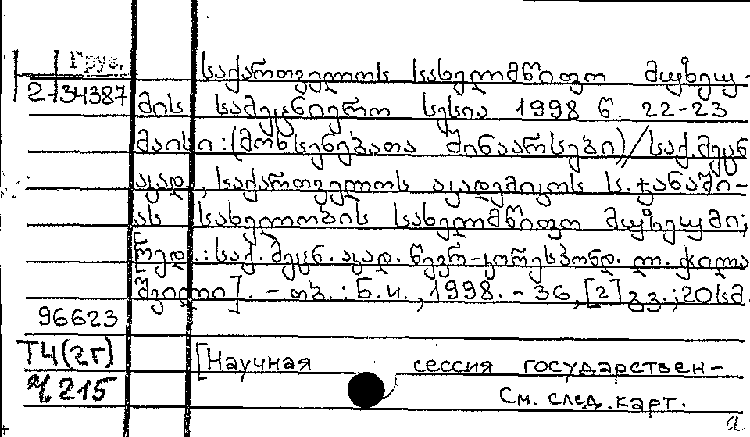 Груз.
2-34387
საქართველოს სახელმწიფო მუზეუ-
მის სამეცნიერო სესია 1998 წ 22-23
მაისი : (მოხსენებათა შინაარსები) / საქ. მეცნ
აკად., საქართველოს აკადემიკოს ს. ჯანაში-
ას სახელობის სახელმწიფო მუზეუმი;
[რედ. : საქ. მეცნ. აკად. წევრ-კორესპონდ. ლ. ჭილა
შვილი]. - თბ. : ნ.ი., 1998. - 36, [2] გვ.; 20სმ.
96623
Т4(2г)
Ч 215
[Научная сессия государствен-
См. след. карт.
а